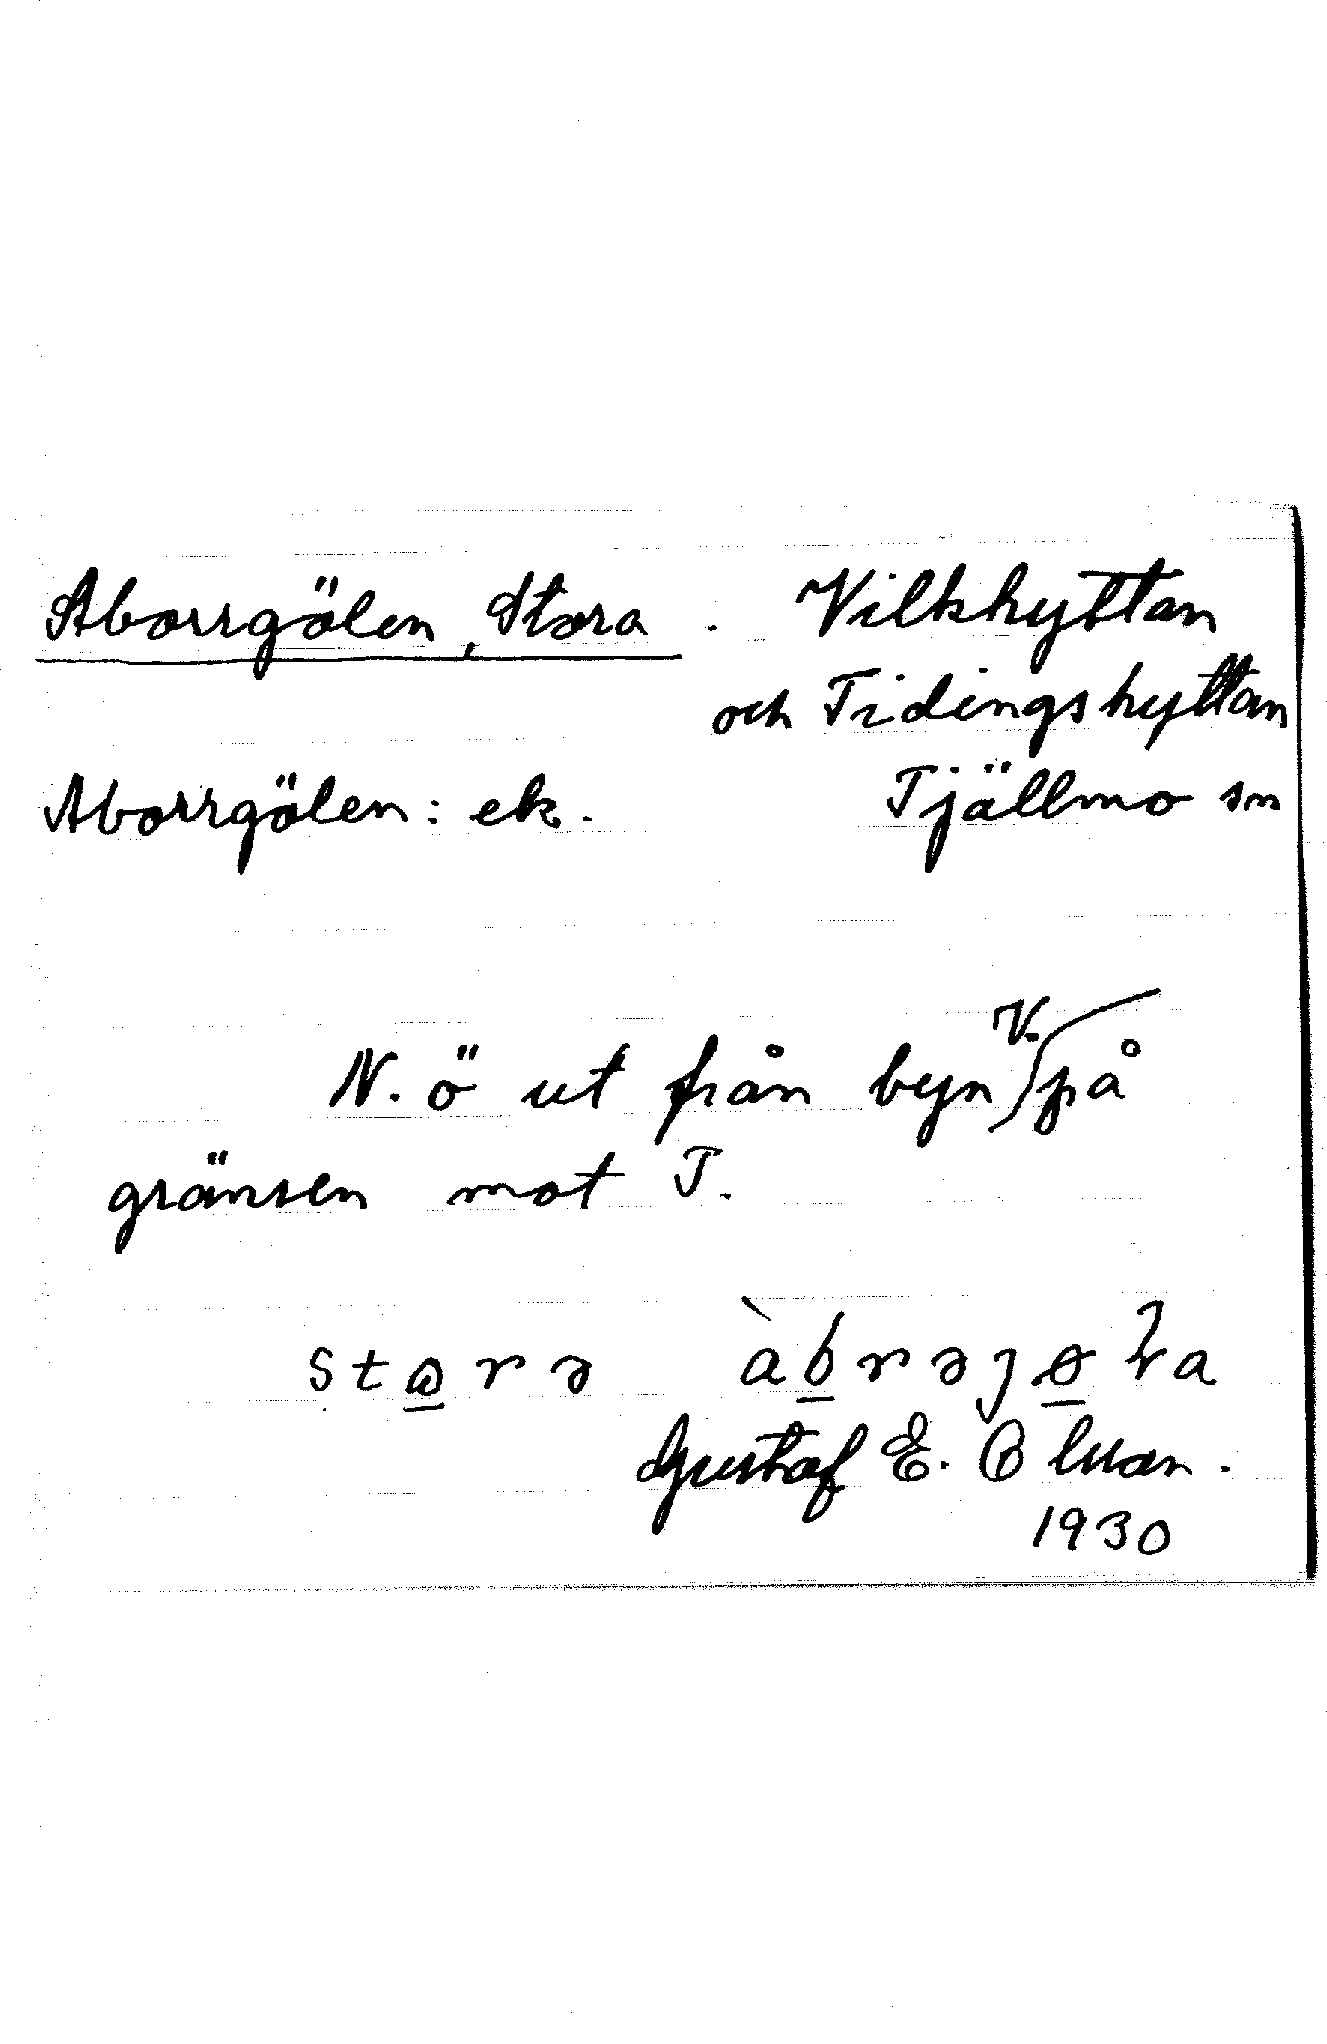 Aborrgölen, Stora . Vilkhyttan
och Tidingshyttan
Aborrgölen: ek. Tjällmo sn
N. ö ut från byn V. på
gränsen mot T.
Gustaf E. Olsson.
1930